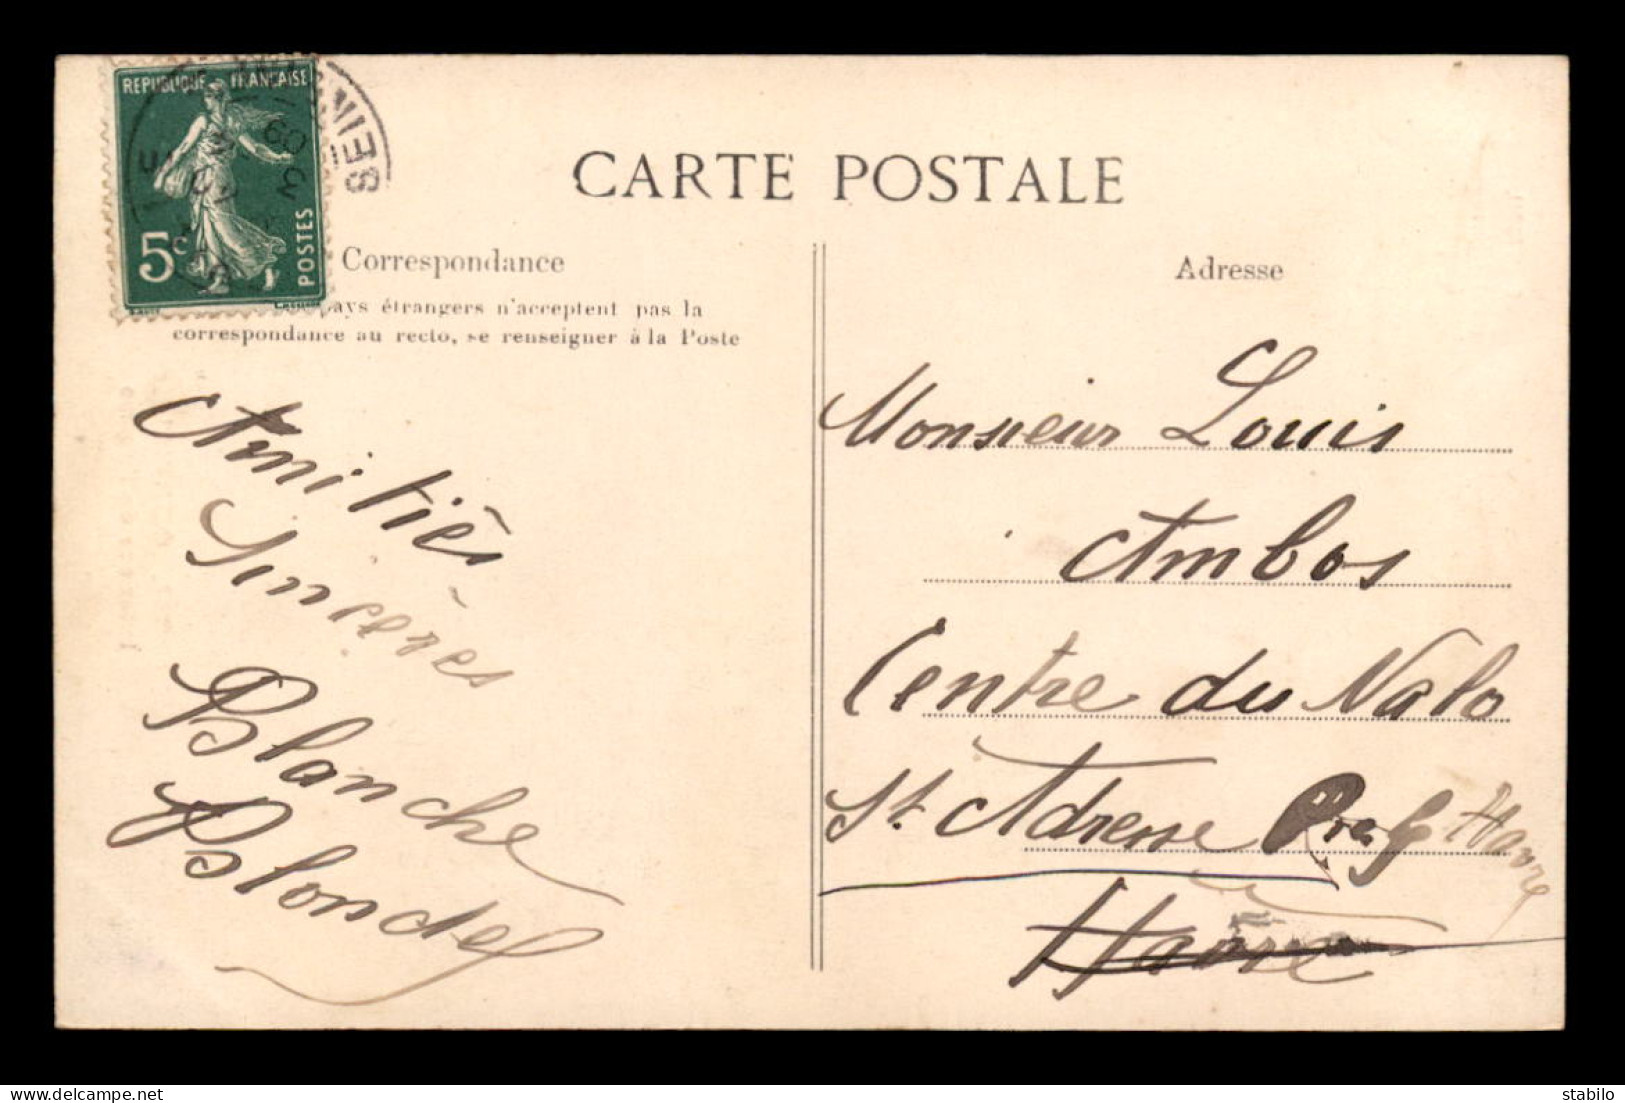 REPUBLIQUE FRANÇAISE
5c
POSTES
SEINE
CARTE POSTALE
Correspondance
pays étrangers n'acceptent pas la
correspondance au recto, se renseigner à la Poste
Amitiés
Sincères
Blanche
Blondel
Adresse
Monsieur Louis
Ambos
Centre du Nalo
St. Adresse Havre
Havre
stabilo